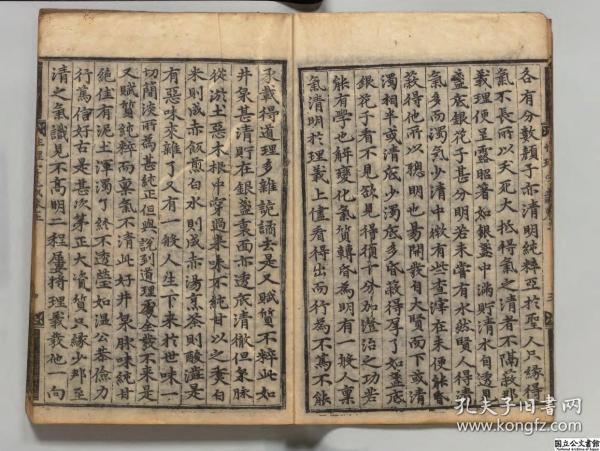 各有分數顏子亦清明純粹亞於聖人只緣得
氣不長所以夭死大抵得氣之清者不隔蔽
義理便呈露昭著如銀盞中滿貯清水自透見
盞底銀花子甚分明若未嘗有水然賢人得清
氣多而濁氣少清中微有些查滓在未便能昏
蔽得他所以聰明也易開發自大賢而下或清
濁相半或清底少濁底多昏蔽得厚了如盞底
銀花子看不見欲見得須十分加澄治之功若
能有學也解變化氣質轉昏為明有一般人稟
氣清明於理義上儘看得出而行為不篤不能
承載得道理多雜詭譎去是又賦質不粹此如
井泉甚清貯在銀盞裏面亦透底清徹但泉脉
從淤土惡木根中穿過來味不純甘以之煑白
米則成赤飯煎白水則成赤湯烹茶則酸澀是
有惡味夾雜了又有一般人生下來於世味一
切簡淡所為甚純正但與說到道理處全發不來是
又賦質純粹而稟氣不清此如井泉脉味純甘
絕佳有泥土渾濁了終不透瑩如溫公恭儉力
行篤信好古是甚次第正大資質只緣少那至
清之氣識見不高明二程屢將理義發他一向
孔夫子旧书网
www.kongfz.com
国立公文書館
National Archives of Japan